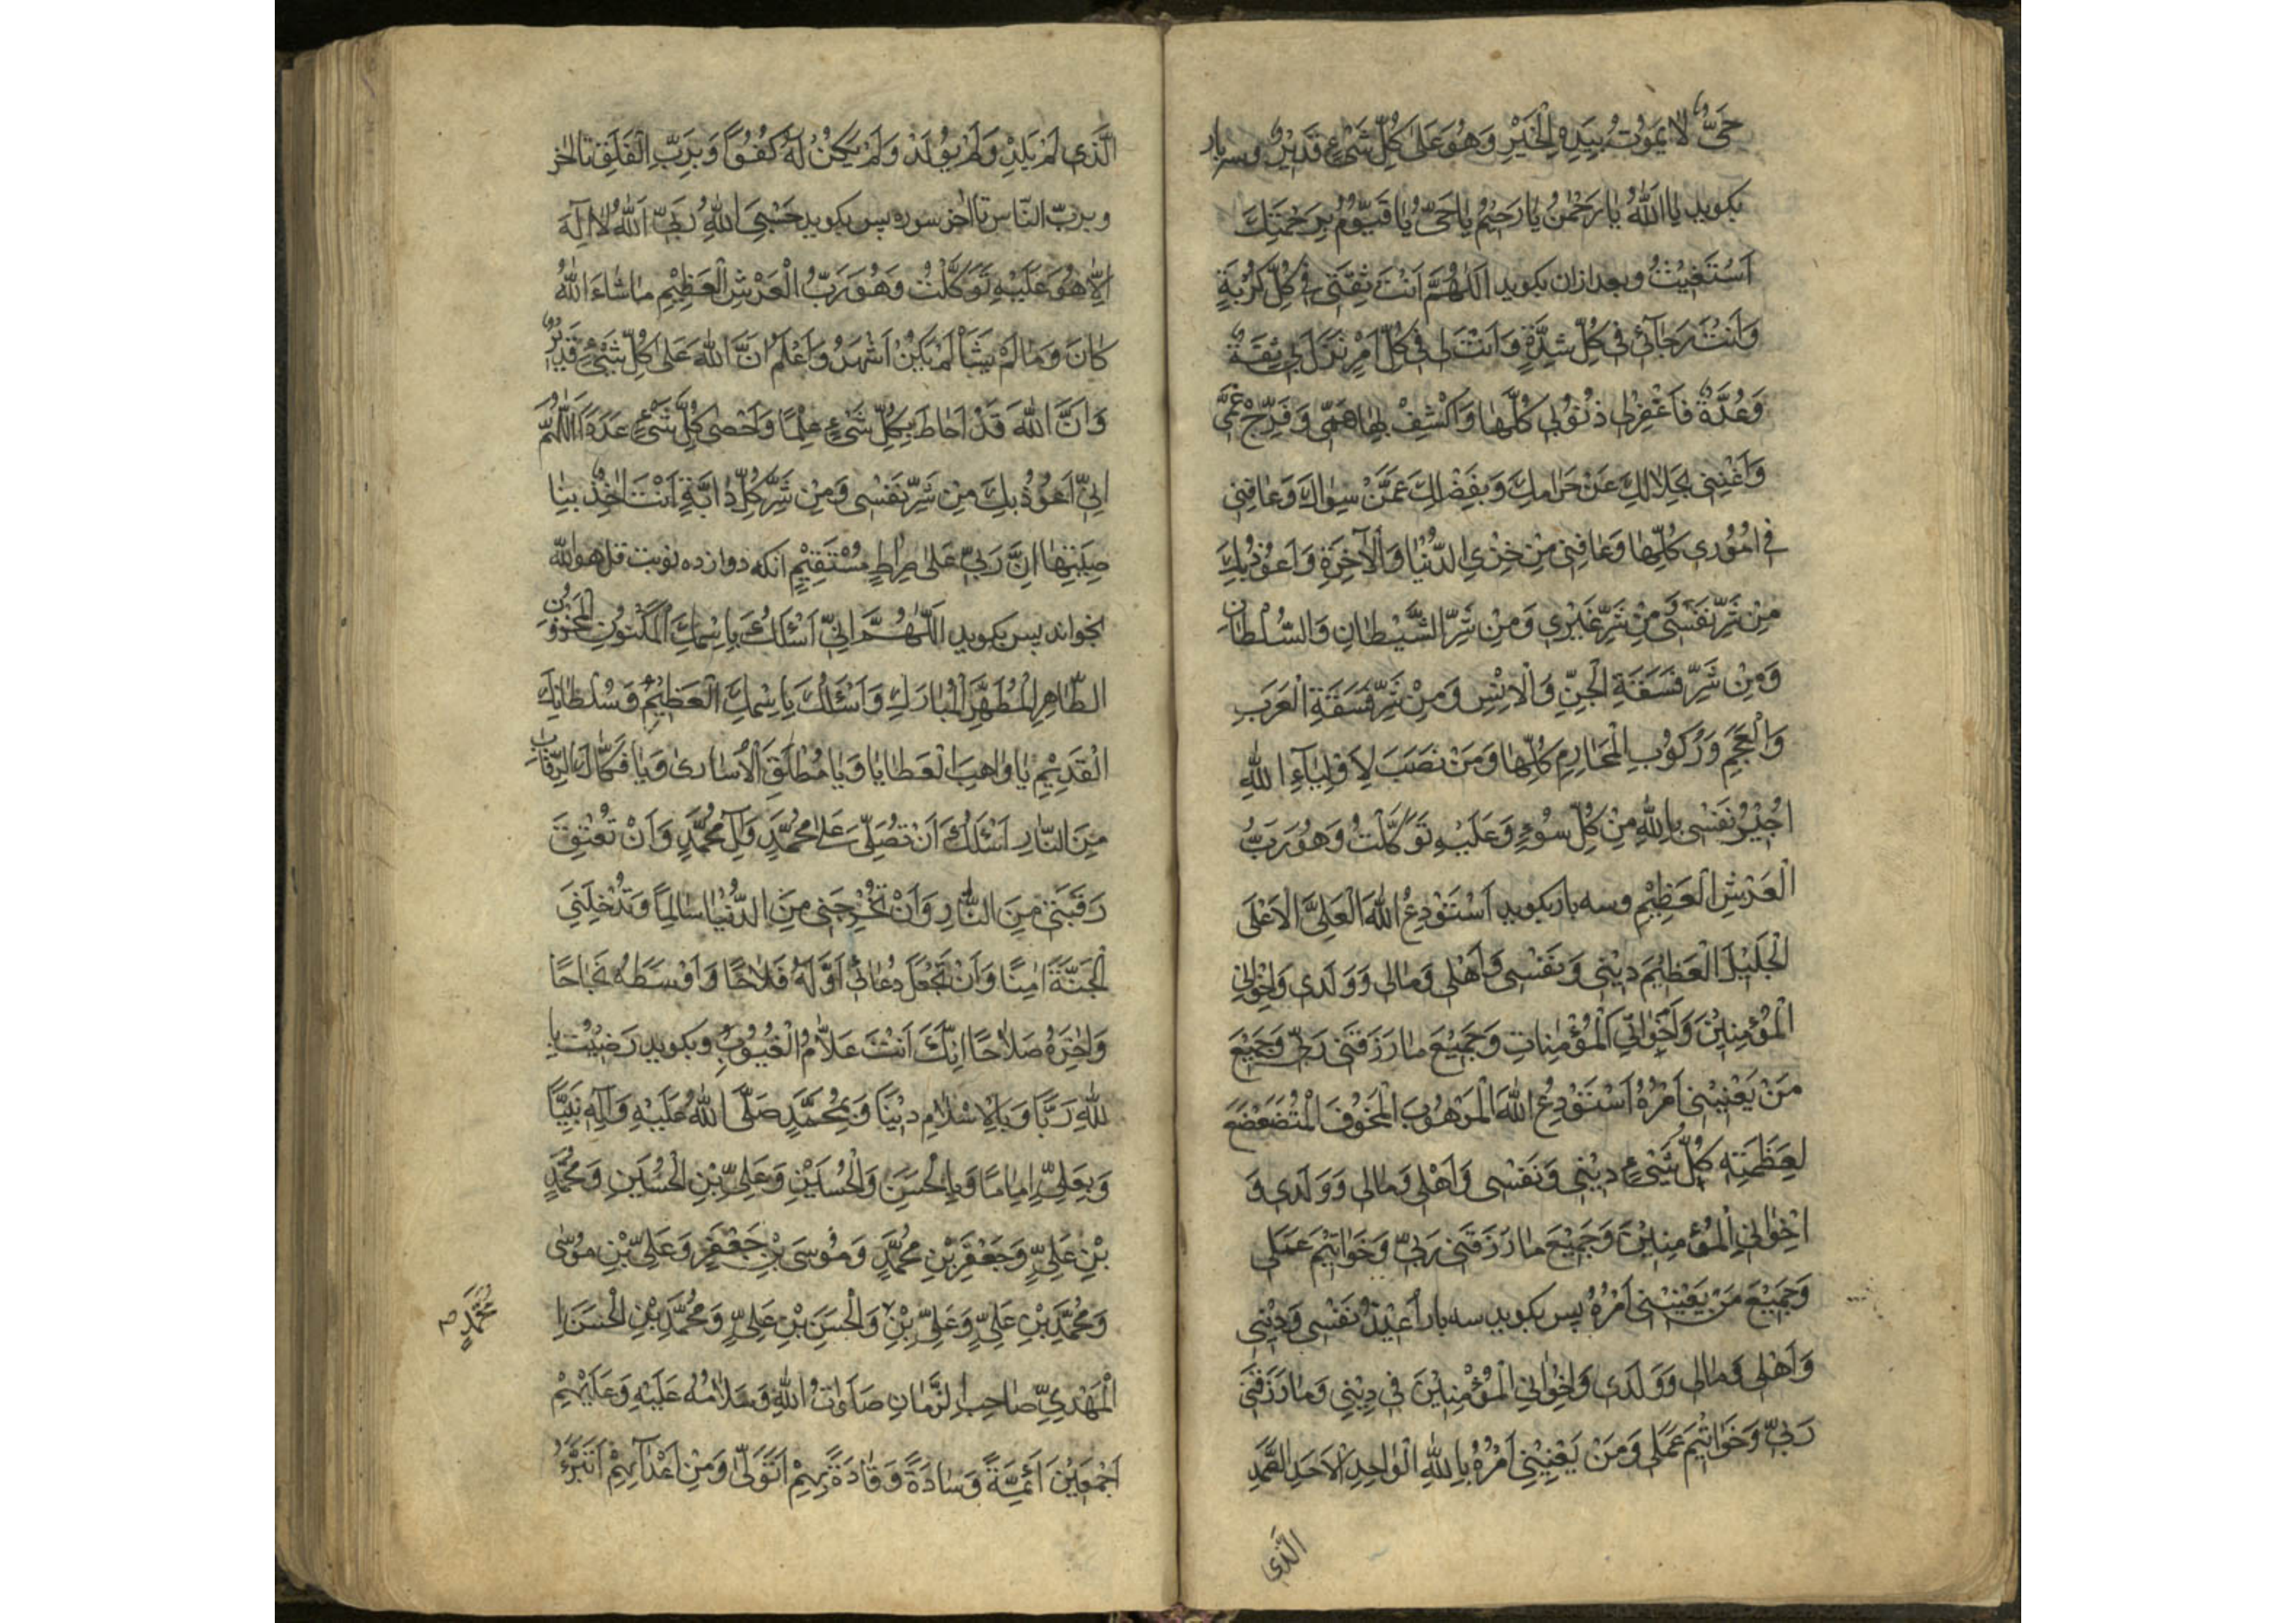 حَىٌّ لا يَمُوتُ بِيَدِهِ الْخَيْرِ وَهُوَ عَلىٰ كُلِّ شَىْءٍ قَدِيْرٌ وسر بار
بكويد يا اَللهُ يٰا رَحْمٰنُ يٰا رَحِيْمُ يٰا حَىُّ يٰا قَيُّوْمُ بِرَحْمَتِكَ
اَسْتَغِيْثُ وبعد ازان بكويد اَللّٰهُمَّ اَنْتَ ثِقَتى فى كُلِّ كُرْبَةٍ
وَاَنْتَ رَجٰآئى فى كُلِّ شِدَّةٍ وَاَنْتَ لى فى كُلِّ اَمْرٍ نَزَلَ بى ثِقَةٌ
وَعُدَّةٌ فَاغْفِرْلى ذُنُوْبى كُلَّهٰا وَاكْشِفْ لهٰا هَمّى وَفَرِّجْ غَمّى
وَاَغْنِنى بِحَلٰالِكَ عَنْ حَرٰامِكَ وَبِفَضْلِكَ عَمَّنْ سِوٰاكَ وَعٰافِنى
فى اُمُوْرى كُلِّهٰا وَعٰافِنى مِنْ خِزْىِ الدُّنْيٰا وَالْاٰخِرَةِ وَاَعُوْذُ بِكَ
مِنْ شَرِّ نَفْسى وَمِنْ شَرِّ غَيْرى وَمِنْ شَرِّ الشَّيْطٰانِ وَالسُّلْطٰانِ
وَمِنْ شَرِّ فَسَقَةِ الْجِنِّ وَالْاِنْسِ وَمِنْ شَرِّ فَسَقَةِ الْعَرَبِ
وَالْعَجَمِ وَرُكُوْبِ الْمَحٰارِمِ كُلِّهٰا وَمَنْ نَصَبَ لِاَوْلِيٰآءِ اللهِ
اُجِيْرُ نَفْسى بِاللهِ مِنْ كُلِّ سُوْءٍ وَعَلَيْهِ تَوَكَّلْتُ وَهُوَ رَبُّ
الْعَرْشِ الْعَظِيْمِ وسه بار بكويد اَسْتَوْدِعُ اللهَ الْعَلِىَّ الْاَعْلَى
الْجَلِيْلَ الْعَظِيْمَ دِيْنى وَنَفْسى وَاَهْلى وَمٰالى وَوَلَدى وَاِخْوٰانى
الْمُؤْمِنِيْنَ وَاَخَوٰاتِى الْمُؤْمِنٰاتِ وَجَمِيْعَ مٰا رَزَقَنى رَبّى وَجَمِيْعَ
مَنْ يَعْنِيْنى اَمْرُهُ اَسْتَوْدِعُ اللهَ الْمَرْهُوبَ الْمَخُوْفَ الْمُتَضَعْضِعَ
لِعَظَمَتِه كُلُّ شَىْءٍ دِيْنى وَنَفْسى وَاَهْلى وَمٰالى وَوَلَدى وَ
اِخْوٰانِى الْمُؤْمِنِيْنَ وَجَمِيْعَ مٰا رَزَقَنى رَبّى وَخَوٰاتِيْمَ عَمَلى
وَجَمِيْعَ مَنْ يَعْنِيْنى اَمْرُهُ پس بكويد سه بار اُعِيْذُ نَفْسى وَدِيْنى
وَاَهْلى وَمٰالى وَوَلَدى وَاِخْوٰانِى الْمُؤْمِنِيْنَ فى دِيْنى وَمٰا رَزَقَنى
رَبّى وَخَوٰاتِيْمَ عَمَلى وَمَنْ يَعْنِيْنى اَمْرُهُ بِاللهِ الْوٰاحِدِ الْاَحَدِ الصَّمَدِ
الَّذى
الَّذى لَمْ يَلِدْ وَلَمْ يُوْلَدْ وَلَمْ يَكُنْ لَهُ كُفُوًا وَبِرَبِّ الْفَلَقِ تا اخر
وبربّ النّاس تا اخر سوره پس بكويد حَسْبِىَ اللهُ رَبِّىَ اللهُ لاٰ اِلٰهَ
اِلّٰا هُوَ عَلَيْهِ تَوَكَّلْتُ وَهُوَ رَبُّ الْعَرْشِ الْعَظِيْمِ مٰا شٰاءَ اللهُ
كٰانَ وَمٰا لَمْ يَشَأْ لَمْ يَكُنْ اَشْهَدُ وَاَعْلَمُ اَنَّ اللهَ عَلى كُلِّ شَىْءٍ قَدِيْرٌ
وَاَنَّ اللهَ قَدْ اَحٰاطَ بِكُلِّ شَىْءٍ عِلْمًا وَاَحْصٰى كُلَّ شَىْءٍ عَدَدًا اَللّٰهُمَّ
اِنّى اَعُوْذُ بِكَ مِنْ شَرِّ نَفْسى وَمِنْ شَرِّ كُلِّ دٰابَّةٍ اَنْتَ اٰخِذٌ بِنٰا
صِيَتِهٰا اِنَّ رَبّى عَلىٰ صِرٰاطٍ مُسْتَقِيْمٍ انكه دوازده نوبت قل هو الله
بخواند پس بكويد اَللّٰهُمَّ اِنّى اَسْئَلُكَ بِاسْمِكَ الْمَكْنُوْنِ الْمَخْزُوْنِ
الطّٰاهِرِ الْمُطَهَّرِ الْمُبٰارَكِ وَاَسْئَلُكَ بِاسْمِكَ الْعَظِيْمِ وَسُلْطٰانِكَ
الْقَدِيْمِ يٰا وٰاهِبَ الْعَطٰايٰا وَيٰا مُطْلِقَ الْاُسٰارىٰ وَيٰا فَكّٰاكَ الرِّقٰابِ
مِنَ النّٰارِ اَسْئَلُكَ اَنْ تُصَلِّىَ عَلىٰ مُحَمَّدٍ وَاٰلِ مُحَمَّدٍ وَاَنْ تُعْتِقَ
رَقَبَتى مِنَ النّٰارِ وَاَنْ تُخْرِجَنى مِنَ الدُّنْيٰا سٰالِمًا وَتُدْخِلَنِىَ
الْجَنَّةَ اٰمِنًا وَاَنْ تَجْعَلَ دُعٰائى اَوَّلَهُ فَلٰاحًا وَاَوْسَطَهُ نَجٰاحًا
وَاٰخِرَهُ صَلٰاحًا اِنَّكَ اَنْتَ عَلّٰامُ الْغُيُوْبِ وبكويد رَضِيْتُ با
للهِ رَبًّا وَبِالْاِسْلٰامِ دِيْنًا وَبِمُحَمَّدٍ صَلَّى اللهُ عَلَيْهِ وَاٰلِه نَبِيًّا
وَبِعَلِىٍّ اِمٰامًا وَبِالْحَسَنِ وَالْحُسَيْنِ وَعَلِىِّ بْنِ الْحُسَيْنِ وَمُحَمَّدِ
بْنِ عَلِىٍّ وَجَعْفَرِ بْنِ مُحَمَّدٍ وَمُوْسَى بْنِ جَعْفَرٍ وَعَلِىِّ بْنِ مُوْسٰى
وَمُحَمَّدِ بْنِ عَلِىٍّ وَعَلِىِّ بْنِ وَالْحَسَنِ بْنِ عَلِىٍّ وَمُحَمَّدِ بْنِ الْحَسَنِ ا
مُحَمَّدٍ
الْمَهْدِىِّ صٰاحِبِ الزَّمٰانِ صَلَوٰاتُ اللهِ وَسَلٰامُهُ عَلَيْهِ وَعَلَيْهِمْ
اَجْمَعِيْنَ اَئِمَّةً وَسٰادَةً وَقٰادَةً بِهِمْ اَتَوَلّٰى وَمِنْ اَعْدٰآئِهِمْ اَتَبَرَّءُ